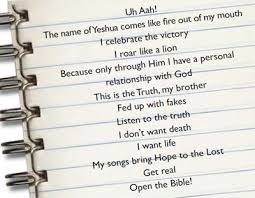 Uh Aah!
The name of Yeshua comes like fire out of my mouth
I celebrate the victory
I roar like a lion
Because only through Him I have a personal
relationship with God
This is the Truth, my brother
Fed up with fakes
Listen to the truth
I don't want death
I want life
My songs bring Hope to the Lost
Get real
Open the Bible!